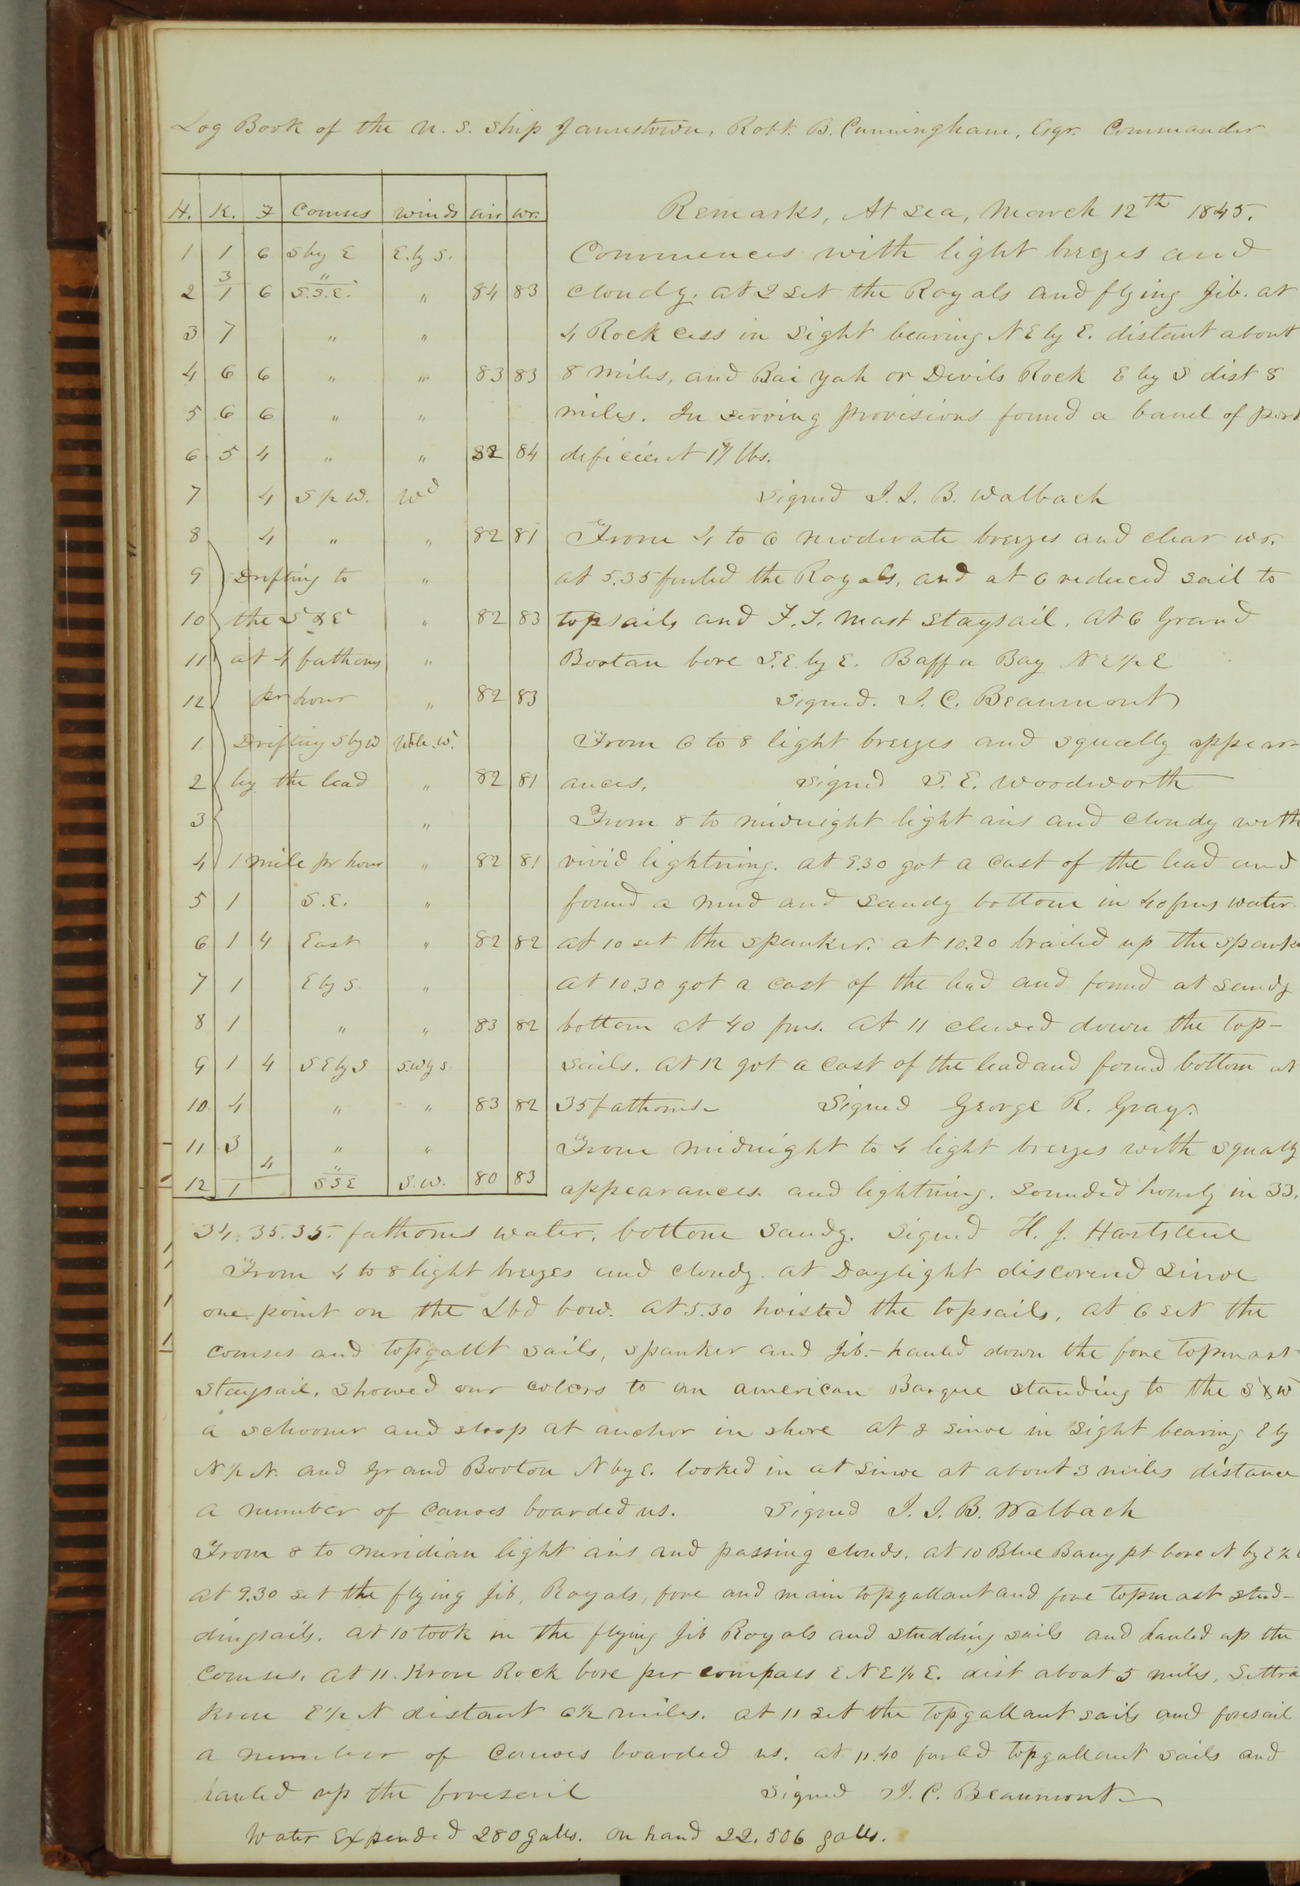 Log Book of the U. S. Ship Jamestown, Robt. B. Cunningham, Esqr. Commander
H. K. F Courses Winds air wr.
Remarks, At Sea, March 12th 1845.
1 1 6 S by E E. by S.
Commences with light breezes and
2 3/1 6 " S.S.E. " 84 83
cloudy. at 2 set the Royals and flying Jib. at
3 7 " "
4 Rock Cess in sight bearing N E by E. distant about
4 6 6 " " 83 83
8 miles, and Bai Yah or Devils Rock E by S dist 8
5 6 6 " "
miles. In serving provisions found a barrel of pork
6 5 4 " " 82 84
deficient 17 lbs.
7 4 S ½ W. Wd
Signed J. J. B. Walbach
8 4 " " 82 81
From 4 to 6 moderate breezes and clear wr.
9 Drifting to "
at 5.35 furled the Royals, and at 6 reduced sail to
10 the S & E " 82 83
topsails and F. T. Mast Staysail. At 6 Grand
11 at 4 fathoms "
Bootan bore S.E by E. Baffu Bay N E ½ E
12 pr hour " 82 83
Signed. J. C. Beaumont
1 Drifting S by W
From 6 to 8 light breezes and squally appear-
2 by the lead " 82 81
ances. Signed S. E. Woodworth
3 "
From 8 to midnight light airs and cloudy with
4 1 mile pr hour " 82 81
vivid lightning. at 9.30 got a cast of the lead and
5 1 S.E. "
found a mud and sandy bottom in 40 fms water
6 1 4 East " 82 82
at 10 set the spanker. at 10.20 brailed up the spanke
7 1 E by S "
at 10.30 got a cast of the lead and found at sandy
8 1 " " 83 82
bottom at 40 fms. At 11 clewed down the top-
9 1 4 S E by S S.W by S
sails. At 12 got a cast of the lead and found bottom at
10 4 " " 83 82
35 fathoms - Signed George R. Gray.
11 3 " "
From midnight to 4 light breezes with squally
12 1 4 " SSE S.W. 80 83
appearances. and lightning. Sounded hourly in 33.
34. 35. 35. fathoms water, bottom sandy. Signed H. J. Hartstene
From 4 to 8 light breezes and cloudy. at Daylight discovered Sinoe
one point on the Lbd bow. At 5.30 hoisted the topsails, at 6 set the
courses and topgallt sails, spanker and Jib. - hauled down the fore topmast
staysail. Showed our colors to an american Barque standing to the S & W
a schooner and sloop at anchor in shore at 8 Sinoe in sight bearing E by
N ½ N. and Grand Bootou N by E. looked in at Sinoe at about 3 miles distance
a number of canoes boarded us. Signed J. J. B. Walbach
From 8 to meridian light airs and passing clouds. at 10 Blue Bany pt bore N by E ½
At 9.30 set the flying Jib, Royals, fore and main topgallant and fore topmast stud-
dingsails. at 10 took in the flying Jib Royals and studding sails and hauled up the
courses. at 11. Krou Rock bore per compass E N E ½ E. dist about 5 miles, Settra
Krou E ½ N distant 6 ½ miles. at 11 set the topgallant sails and foresail
a number of canoes boarded us. at 11.40 furled topgallant sails and
hauled up the foresail Signed J. C. Beaumont
Water Expended 280 galls. on hand 22.506 galls.